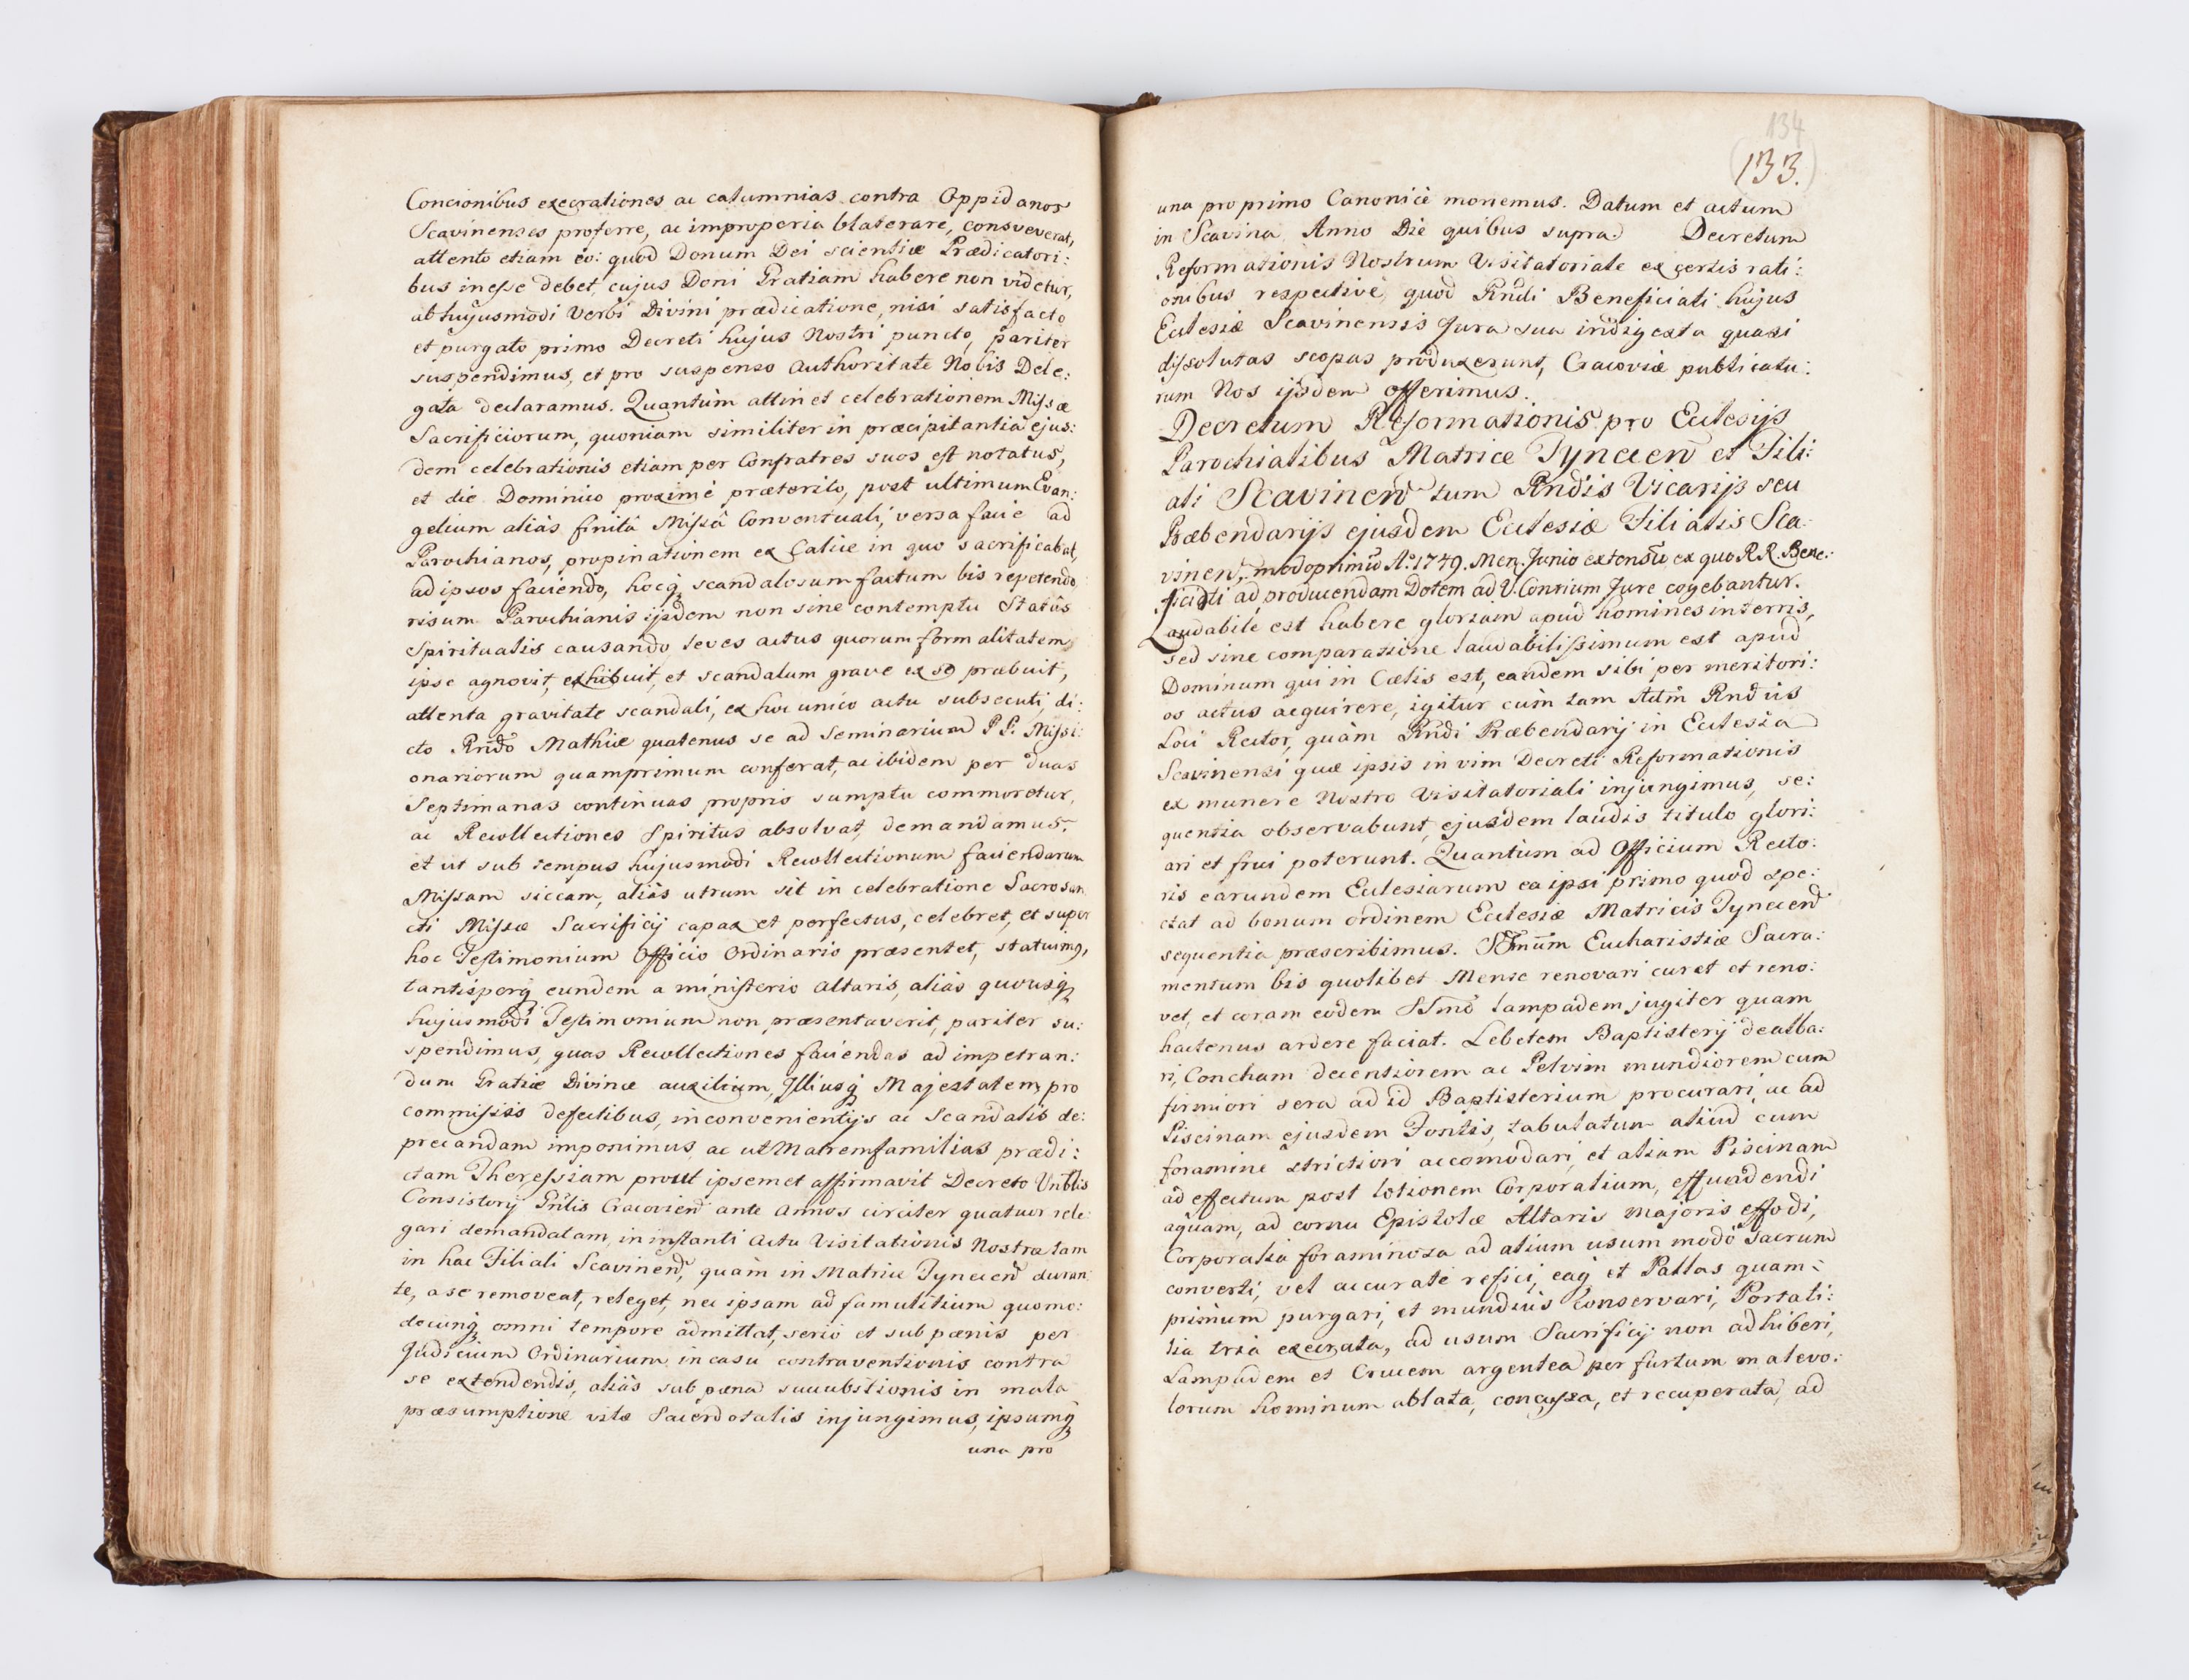 Concionibus execrationes ac calumnias contra Oppidanos
Scavinenses proferre, ac improperia blaterare, consveverat,
attento etiam eo: quod Donum Dei scientiæ Prædicatori:
bus inesse debet, cujus Doni Gratiam habere non videtur,
ab hujusmodi Verbi Divini prædicatione, nisi satisfacto
et purgato primo Decreti hujus Nostri puncto, pariter
suspendimus, et pro suspenso Authoritate Nobis Dele:
gata declaramus. Quantùm attinet celebrationem Missæ
Sacrificiorum, quoniam similiter in præcipitantia ejus:
dem celebrationis etiam per Confratres suos est notatus,
et die Dominico proximè præterito, post ultimum Evan:
gelium aliàs finitâ Missâ Conventuali, versa facie ad
Parochianos, propinationem ex Calice in quo sacrificabat,
ad ipsos faciendo, hocq; scandalosum factum bis repetendo
risum Parochianis ijsdem non sine contemptu Statûs
Spiritualis causando, leves actus quorum formalitatem
ipse agnovit, exhibuit, et scandalum grave ex se præbuit,
attenta gravitate scandali, ex hoc unico actu subsecuti, di:
cto Rndo Mathiæ quatenus se ad Seminarium P.P. Missi:
onariorum quamprimum conferat, ac ibidem per duas
Septimanas continuas proprio sumptu commoretur,
ac Recollectiones Spiritus absolvat, demandamus,
et ut sub tempus hujusmodi Recollectionum faciendarum
Missam siccam, aliàs utrum sit in celebratione Sacrosan
cti Missæ Sacrificij capax et perfectus, celebret, et super
hoc Testimonium Officio Ordinario præsentet, statuimq,
tantisperq; eundem a ministerio Altaris, aliàs quousq;
hujusmodi Testimonium non præsentaverit, pariter su:
spendimus, quas Recollectiones faciendas ad impetran:
dum Gratiæ Divinæ auxilium, Illiusq; Majestatem, pro
commissis defectibus, inconvenientijs ac Scandalis de:
precandam imponimus, ac ut Matremfamilias prædi:
ctam Theressiam prout ipsemet affirmavit Decreto
Consistorij Gnlis Cracovien ante Annos circiter quatuor rele:
gari demandatam, in instanti Actu Visitationis Nostræ tam
in hac Filiali Scavinen, quàm in Matrice Tynecen duran
te, a se removeat, releget, nec ipsam ad famulitium quomo:
docunq; omni tempore admittat, seriò et sub pœnis per
Judicium Ordinarium in casu contraventionis contra
se extendendis, aliàs sub pœna in mala
præsumptione vitæ Sacerdotalis injungimus, ipsumq;
una pro
134
133.
una pro primo Canonicè monemus. Datum et actum
in Scavina Anno Die quibus supra. Decretum
Reformationis Nostrum Visitatoriale ex certis rati:
onibus respectivè, quod Rndi Beneficiati hujus
Ecclesiæ Scavinensis Jura sua indigesta quasi
dissolutas scopas produxerunt, Cracoviæ publicatu:
rum Nos ijsdem offerimus.
Decretum Reformationis pro Ecclesijs
Parochialibus Matrice Tynecen et Fili:
ali Scavinen tum Rndis Vicarijs seu
Præbendarijs ejusdem Ecclesiæ Filialis Sca:
vinen, modoprimū Aō 1749. Men. Junio extensū ex quo R R Bene:
ficiati ad producendam Dotem ad V. Jure cogebantur.
Laudabile est habere gloriam apud homines in terris,
sed sine comparatione laudabilissimum est apud
Dominum qui in Cœlis est, eandem sibi per meritori:
os actus acquirere, igitur cùm tam Rndus
Loci Rector, quàm Rndi Præbendarij in Ecclesia
Scavinensi quæ ipsis in vim Decreti Reformationis
ex munere Nostro Visitatoriali injungimus, se:
quentia observabunt, ejusdem laudis titulo glori:
ari et frui poterunt. Quantùm ad Officium Recto:
ris earundem Ecclesiarum ea ipsi primo quod spe:
ctat ad bonum ordinem Ecclesiæ Matricis Tynecen
sequentia præscribimus. SSmum Eucharistiæ Sacra:
mentum bis quolibet Mense renovari curet et reno:
vet, et coram eodem SSmo lampadem jugiter quam
hactenus ardere faciat. Lebetem Baptisterij dealba:
ri, Concham decentiorem ac Pelvim mundiorem cum
firmiori sera ad id Baptisterium procurari, ac ad
Piscinam ejusdem Fontis, tabulatum aliud cum
foramine strictiori accomodari, et aliam Piscinam
ad effectum post lotionem Corporalium, effundendi
aquam, ad cornu Epistolæ Altaris majoris effodi,
Corporalia foraminosa ad alium usum modò Sacrum
converti, vel accuratè refici, eaq; et Pallas quam:
primùm purgari, et mundiùs conservari, Portati:
lia tria execrata, ad usum Sacrificij non adhiberi,
Lampadem et Crucem argentea per furtum malevo:
lorum hominum ablata, concussa, et recuperata, ad